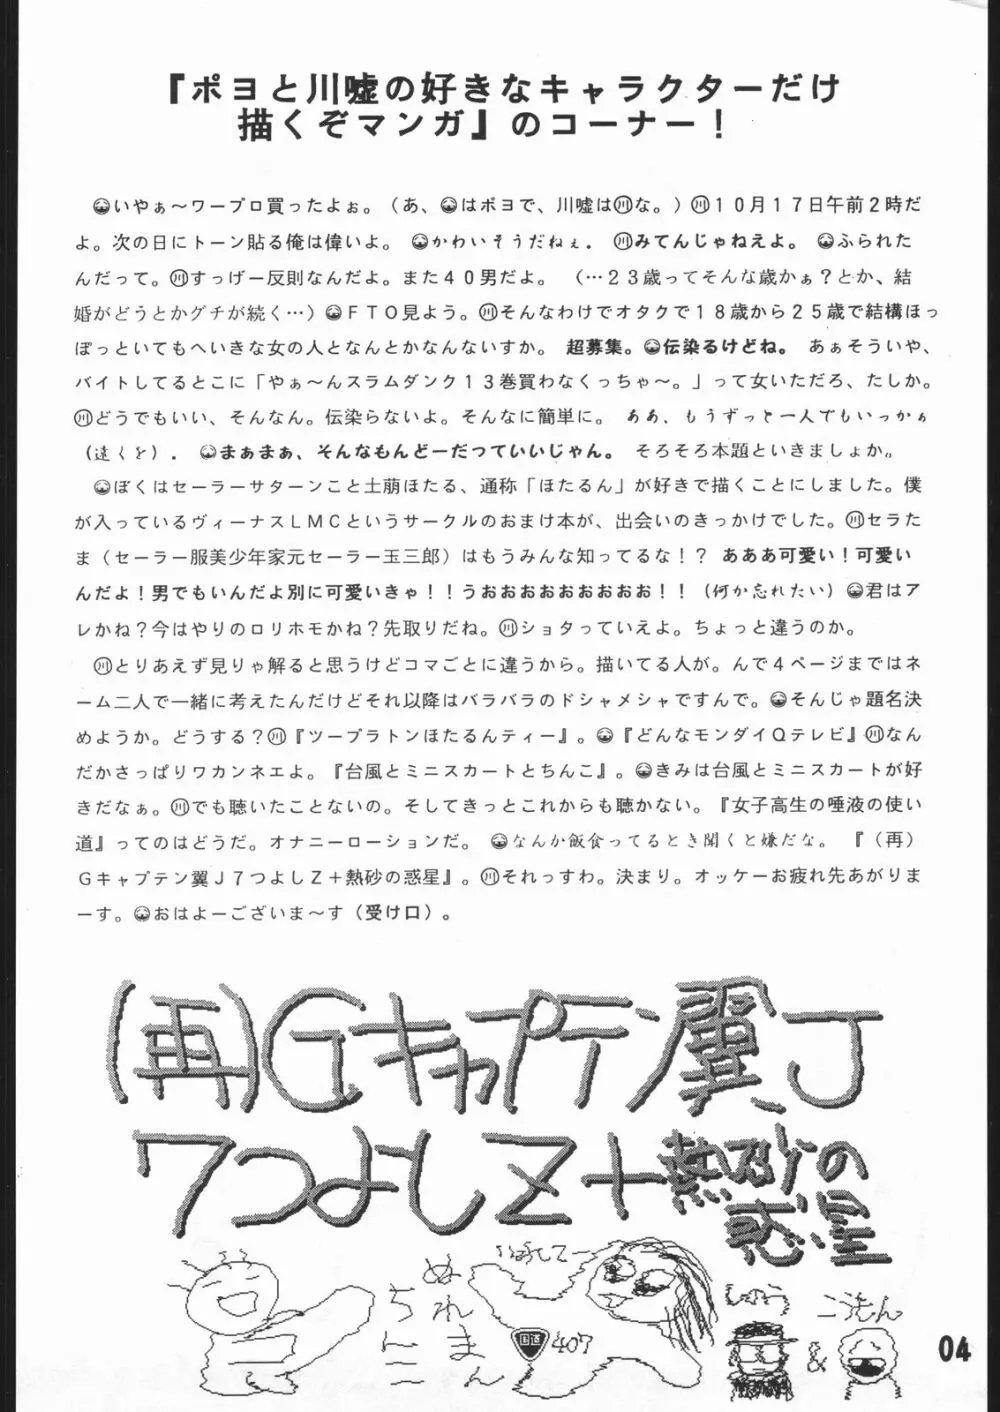 『ポヨと川嘘の好きなキャラクターだけ
描くぞマンガ』のコーナー！
いやぁ～ワープロ買ったよぉ。（あ、はポヨで、川嘘は㊀な。）10月17日午前2時だ
よ。次の日にトーン貼る俺は偉いよ。かわいそうだねぇ．川みてんじゃねえよ。ふられた
んだって。川すっげー反則なんだよ。また40男だよ。（…23歳ってそんな歳かぁ？とか、結
婚がどうとかグチが続く…）FTO見よう。川そんなわけでオタクで18歳から25歳で結構ほっ
ぽっといてもへいきな女の人となんとかなんないすか。超募集。伝染るけどね。あぁそういや、
バイトしてるとこに「やぁ～んスラムダンク13巻買わなくっちゃ～。」って女いただろ、たしか。
川どうでもいい、そんなん。伝染らないよ。そんなに簡単に。ああ、もうずっと一人でもいっかぁ
（遠くを）．まぁまぁ、そんなもんどーだっていいじゃん。そろそろ本題といきましょか。
ぼくはセーラーサターンこと土萌ほたる、通称「ほたるん」が好きで描くことにしました。僕
が入っているヴィーナスLMCというサークルのおまけ本が、出会いのきっかけでした。川セラた
ま（セーラー服美少年家元セーラー玉三郎）はもうみんな知ってるな！？あああ可愛い！可愛い
んだよ！男でもいんだよ別に可愛いきゃ！！うおおおおおおおおお！！（何か忘れたい）君はア
レかね？今はやりのロリホモかね？先取りだね。川ショタっていえよ。ちょっと違うのか。
川とりあえず見りゃ解ると思うけどコマごとに違うから。描いてる人が。んで4ページまではネ
ーム二人で一緒に考えたんだけどそれ以降はバラバラのドシャメシャですんで。そんじゃ題名決
めようか。どうする？川『ツープラトンほたるんティー』。『どんなモンダイQテレビ』川なん
だかさっぱりワカンネエよ。『台風とミニスカートとちんこ』。きみは台風とミニスカートが好
きだなぁ。川でも聴いたことないの。そしてきっとこれからも聴かない。『女子高生の唾液の使い
道』ってのはどうだ。オナニーローションだ。なんか飯食ってるとき聞くと嫌だな。『（再）
Gキャプテン翼J7つよしZ＋熱砂の惑星』。川それっすわ。決まり。オッケーお疲れ先あがりま
ーす。おはよーございま～す（受け口）。
(再)Gキャプテン翼J
7つよしZ＋熱砂の
惑星
ちんこ
ぬれまん
国道
407
じゅう
&
こうもん
04